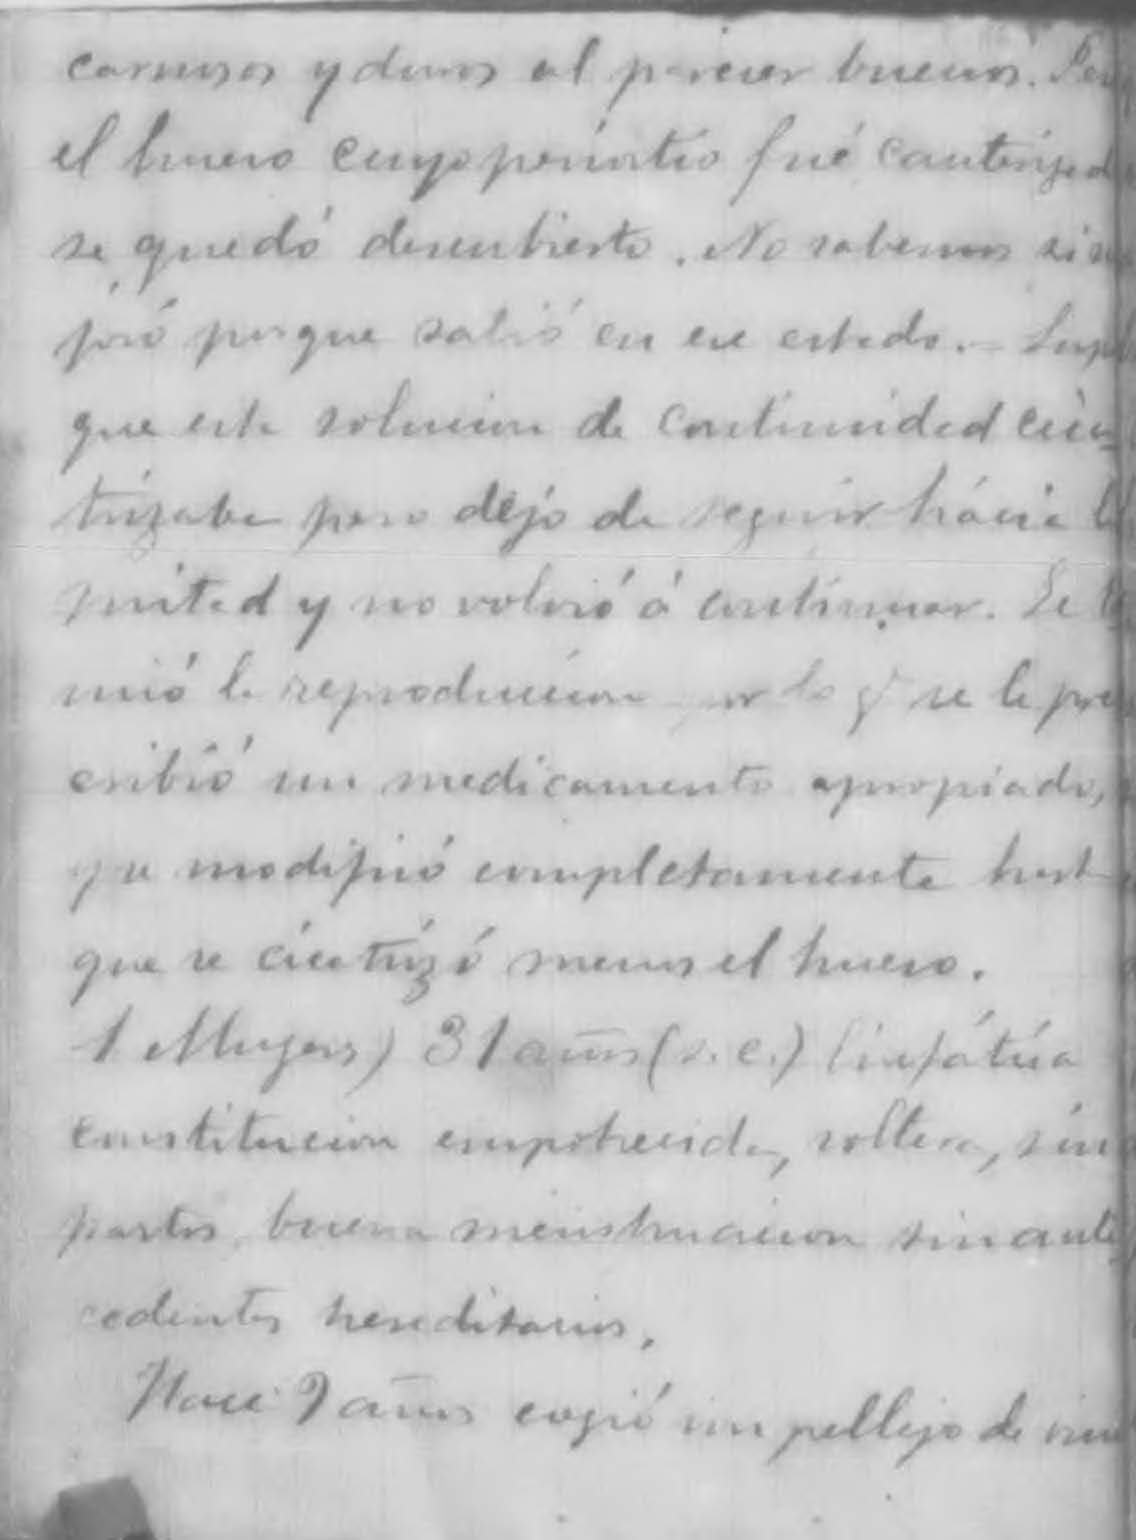 carnosos y duros al parecer buenos. Pero
el hueso cuyo periostio fué cauterizado
se quedó descubierto. No sabemos si me
joró porque salió en ese estado. —
que esta solucion de continuidad cica
trizaba pero dejó de seguir hácia la
mitad y no volvió á continuar. Se te
mió la reproduccion por lo q^e se le pre
scribió un medicamento apropiado,
que modificó completamente hasta
que se cicatrizó menos el hueso.
1 Mugeres) 31 años (s. c.) linfática
constitucion empobrecida, soltera, sin
partos, buena menstruacion sin ante
cedentes hereditarios.
Hace 9 años cogió un pellejo de vino